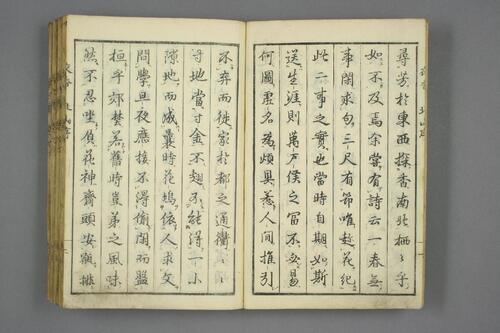 尋芳於東西探香南北栖々乎
如不及焉余嘗有詩云一春無
事閑求句三尺有節唯趁花紀
此二事之實也當時自期如斯
送生涯則萬戸侯之冨不必易
何圖虚名為煩具惹人間推引
不弃而徙家於都之通衢
寸地當寸金不翅不能得一小
隙地而咸曩時花塢依人求文
問學且夜應接不得偸閑而盤
桓乎郊埜若舊時豈弟之風味
然不忍唑負花神齊頭安瓶挿